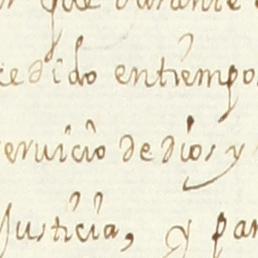 que durante
cedido entiempo
servicio de dios y
Justicia, y par